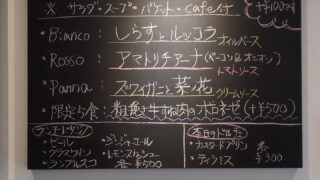 ※ サラダ・スープ・バゲット・cafe付
+¥100です
・Bianco : しらすとルッコラ オイルベース
・Rosso : アマトリチャーナ (ベーコン&オニオン) トマトソース
・Panna : ズワイガニと菜ノ花 クリームソース
・限定5食 : 粗挽き牛すね肉のボロネーゼ (+¥500)
ランチドリンク
・ビール
・グラスワイン
・ランブルスコ
・ジンジャーエール
・レモンスカッシュ
各 ¥500
本日のドルチェ
・カスタードプリン
・ティラミス
各 ¥300